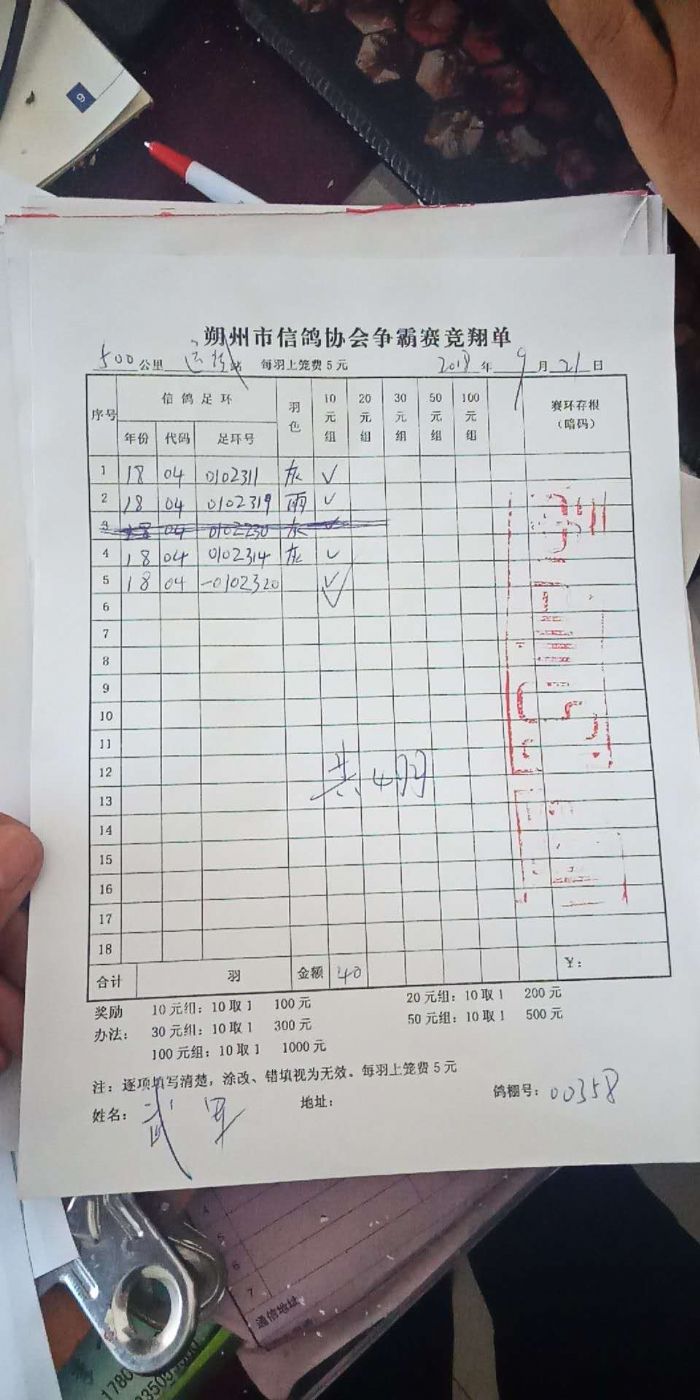 9
朔州市信鸽协会争霸赛竞翔单
500公里 站 每羽上笼费5元 2018年9月21日
序号 信鸽足环 羽色 10元组 20元组 30元组 50元组 100元组 赛环存根（暗码）
年份 代码 足环号
1 18 04 0102311 灰 ✓
2 18 04 0102319 雨 ✓
3 18 04 0102230 灰 ✓
4 18 04 0102314 灰 ✓
5 18 04 -0102320 ✓
6 ✓
7
8
9
10
11
12 共4羽
13
14
15
16
17
18
合计 羽 金额 40 ¥：
奖励 10元组：10取1 100元 20元组：10取1 200元
办法： 30元组：10取1 300元 50元组：10取1 500元
100元组：10取1 1000元
注：逐项填写清楚，涂改、错填视为无效。每羽上笼费5元
姓名：武军 地址： 鸽棚号：00358
4
5
6
7
通信地址
1780
03505